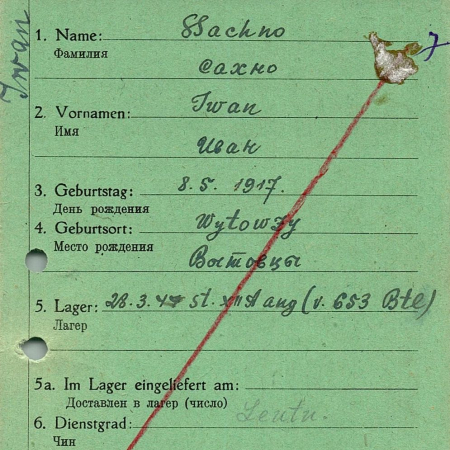 Iwan
1. Name: Ssachno
7
Фамилия
Сахно
2. Vornamen: Iwan
Имя
Иван
3. Geburtstag: 8.5. 1917.
День рождения
4. Geburtsort: Wytowzy
Место рождения
Вытовцы
5. Lager: 28.3.4 st. ang (v. 653 Btl)
Лагер
5a. Im Lager eingeliefert am:
Доставлен в лагер (число)
6. Dienstgrad: Leutn.
Чин